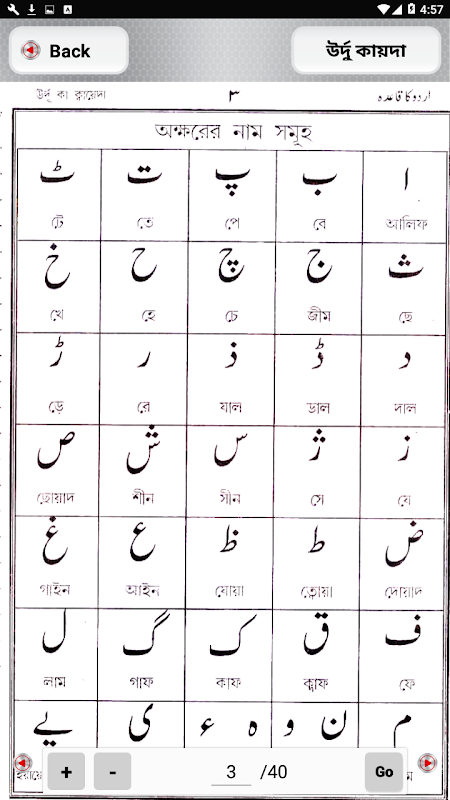 4:57
Back
উর্দু কায়দা
উর্দু কা ক্বায়েদা ٣ اردو کا قاعدہ
অক্ষরের নাম সমূহ
ا ب پ ت ٹ
টে তে পে বে আলিফ
ث ج چ ح خ
খে হে চে জীম ছে
د ڈ ذ ر ڑ
ড়ে রে যাল ডাল দাল
ز ژ س ش ص
ছোয়াদ শীন সীন সে যে
ض ط ظ ع غ
গাইন আইন যোয়া ত্বোয়া দোয়াদ
ف ق ک گ ل
লাম গাফ কাফ ক্বাফ ফে
م ن و ہ ء ی یے
+ - 3 /40 Go